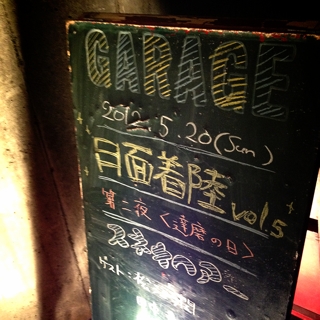 GARAGE
2012.5.20(Sun)
月面着陸 vol.5
第二夜〈達磨の日〉
スネオヘアー
ゲスト: